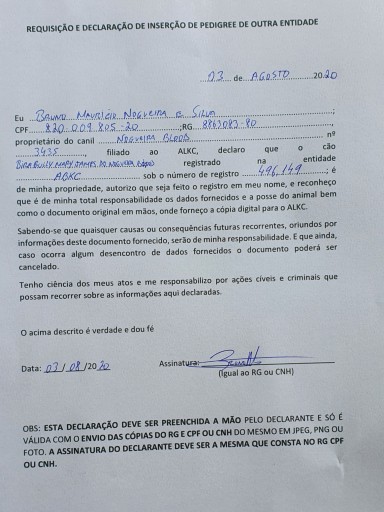 REQUISIÇÃO E DECLARAÇÃO DE INSERÇÃO DE PEDIGREE DE OUTRA ENTIDADE
03 de AGOSTO 2020
Eu BRUNO MAURICIO NOGUEIRA E SILVA;
CPF 820 009 805-20;RG
proprietário do canil NOGUEIRA BLOOD nº
3435, filiado ao ALKC, declaro que o cão
registrado na entidade
ABKC sob o número de registro 496,149; é
de minha propriedade, autorizo que seja feito o registro em meu nome, e reconheço
que é de minha total responsabilidade os dados fornecidos e a posse do animal bem
como o documento original em mãos, onde forneço a cópia digital para o ALKC.
Sabendo-se que quaisquer causas ou consequências futuras recorrentes, oriundos por
informações deste documento fornecido, serão de minha responsabilidade. E que ainda,
caso ocorra algum desencontro de dados fornecidos o documento poderá ser
cancelado.
Tenho ciência dos meus atos e me responsabilizo por ações cíveis e criminais que
possam recorrer sobre as informações aqui declaradas.
O acima descrito é verdade e dou fé
Data: 03/08/2020 Assinatura:
(Igual ao RG ou CNH)
OBS: ESTA DECLARAÇÃO DEVE SER PREENCHIDA A MÃO PELO DECLARANTE E SÓ É
VÁLIDA COM O ENVIO DAS CÓPIAS DO RG E CPF OU CNH DO MESMO EM JPEG, PNG OU
FOTO. A ASSINATURA DO DECLARANTE DEVE SER A MESMA QUE CONSTA NO RG CPF
OU CNH.